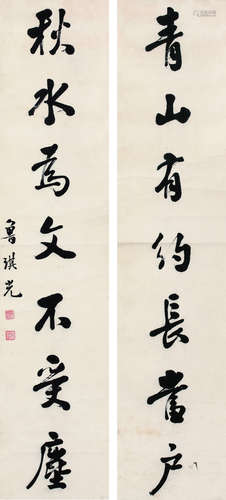 青山有約長當戶
秋水為文不受塵
魯琪光